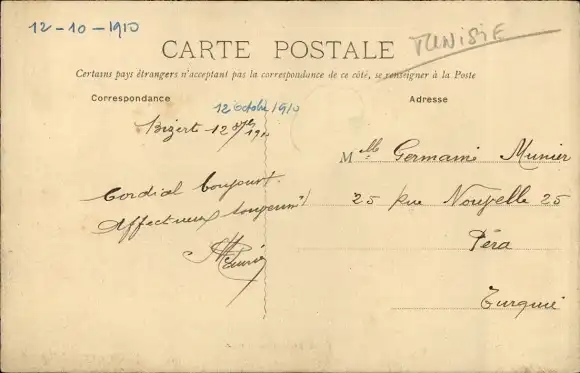 12-10-1910
TUNISIE
CARTE POSTALE
Certains pays étrangers n'acceptant pas la correspondance de ce côté, se renseigner à la Poste
Correspondance
Adresse
12 octobre 1910
Bizerte 12 8bre 1910
Cordial bonjour
Affectueux
Mlle Germaine Munier
25 Rue Nouvelle 25
Péra
Turquie